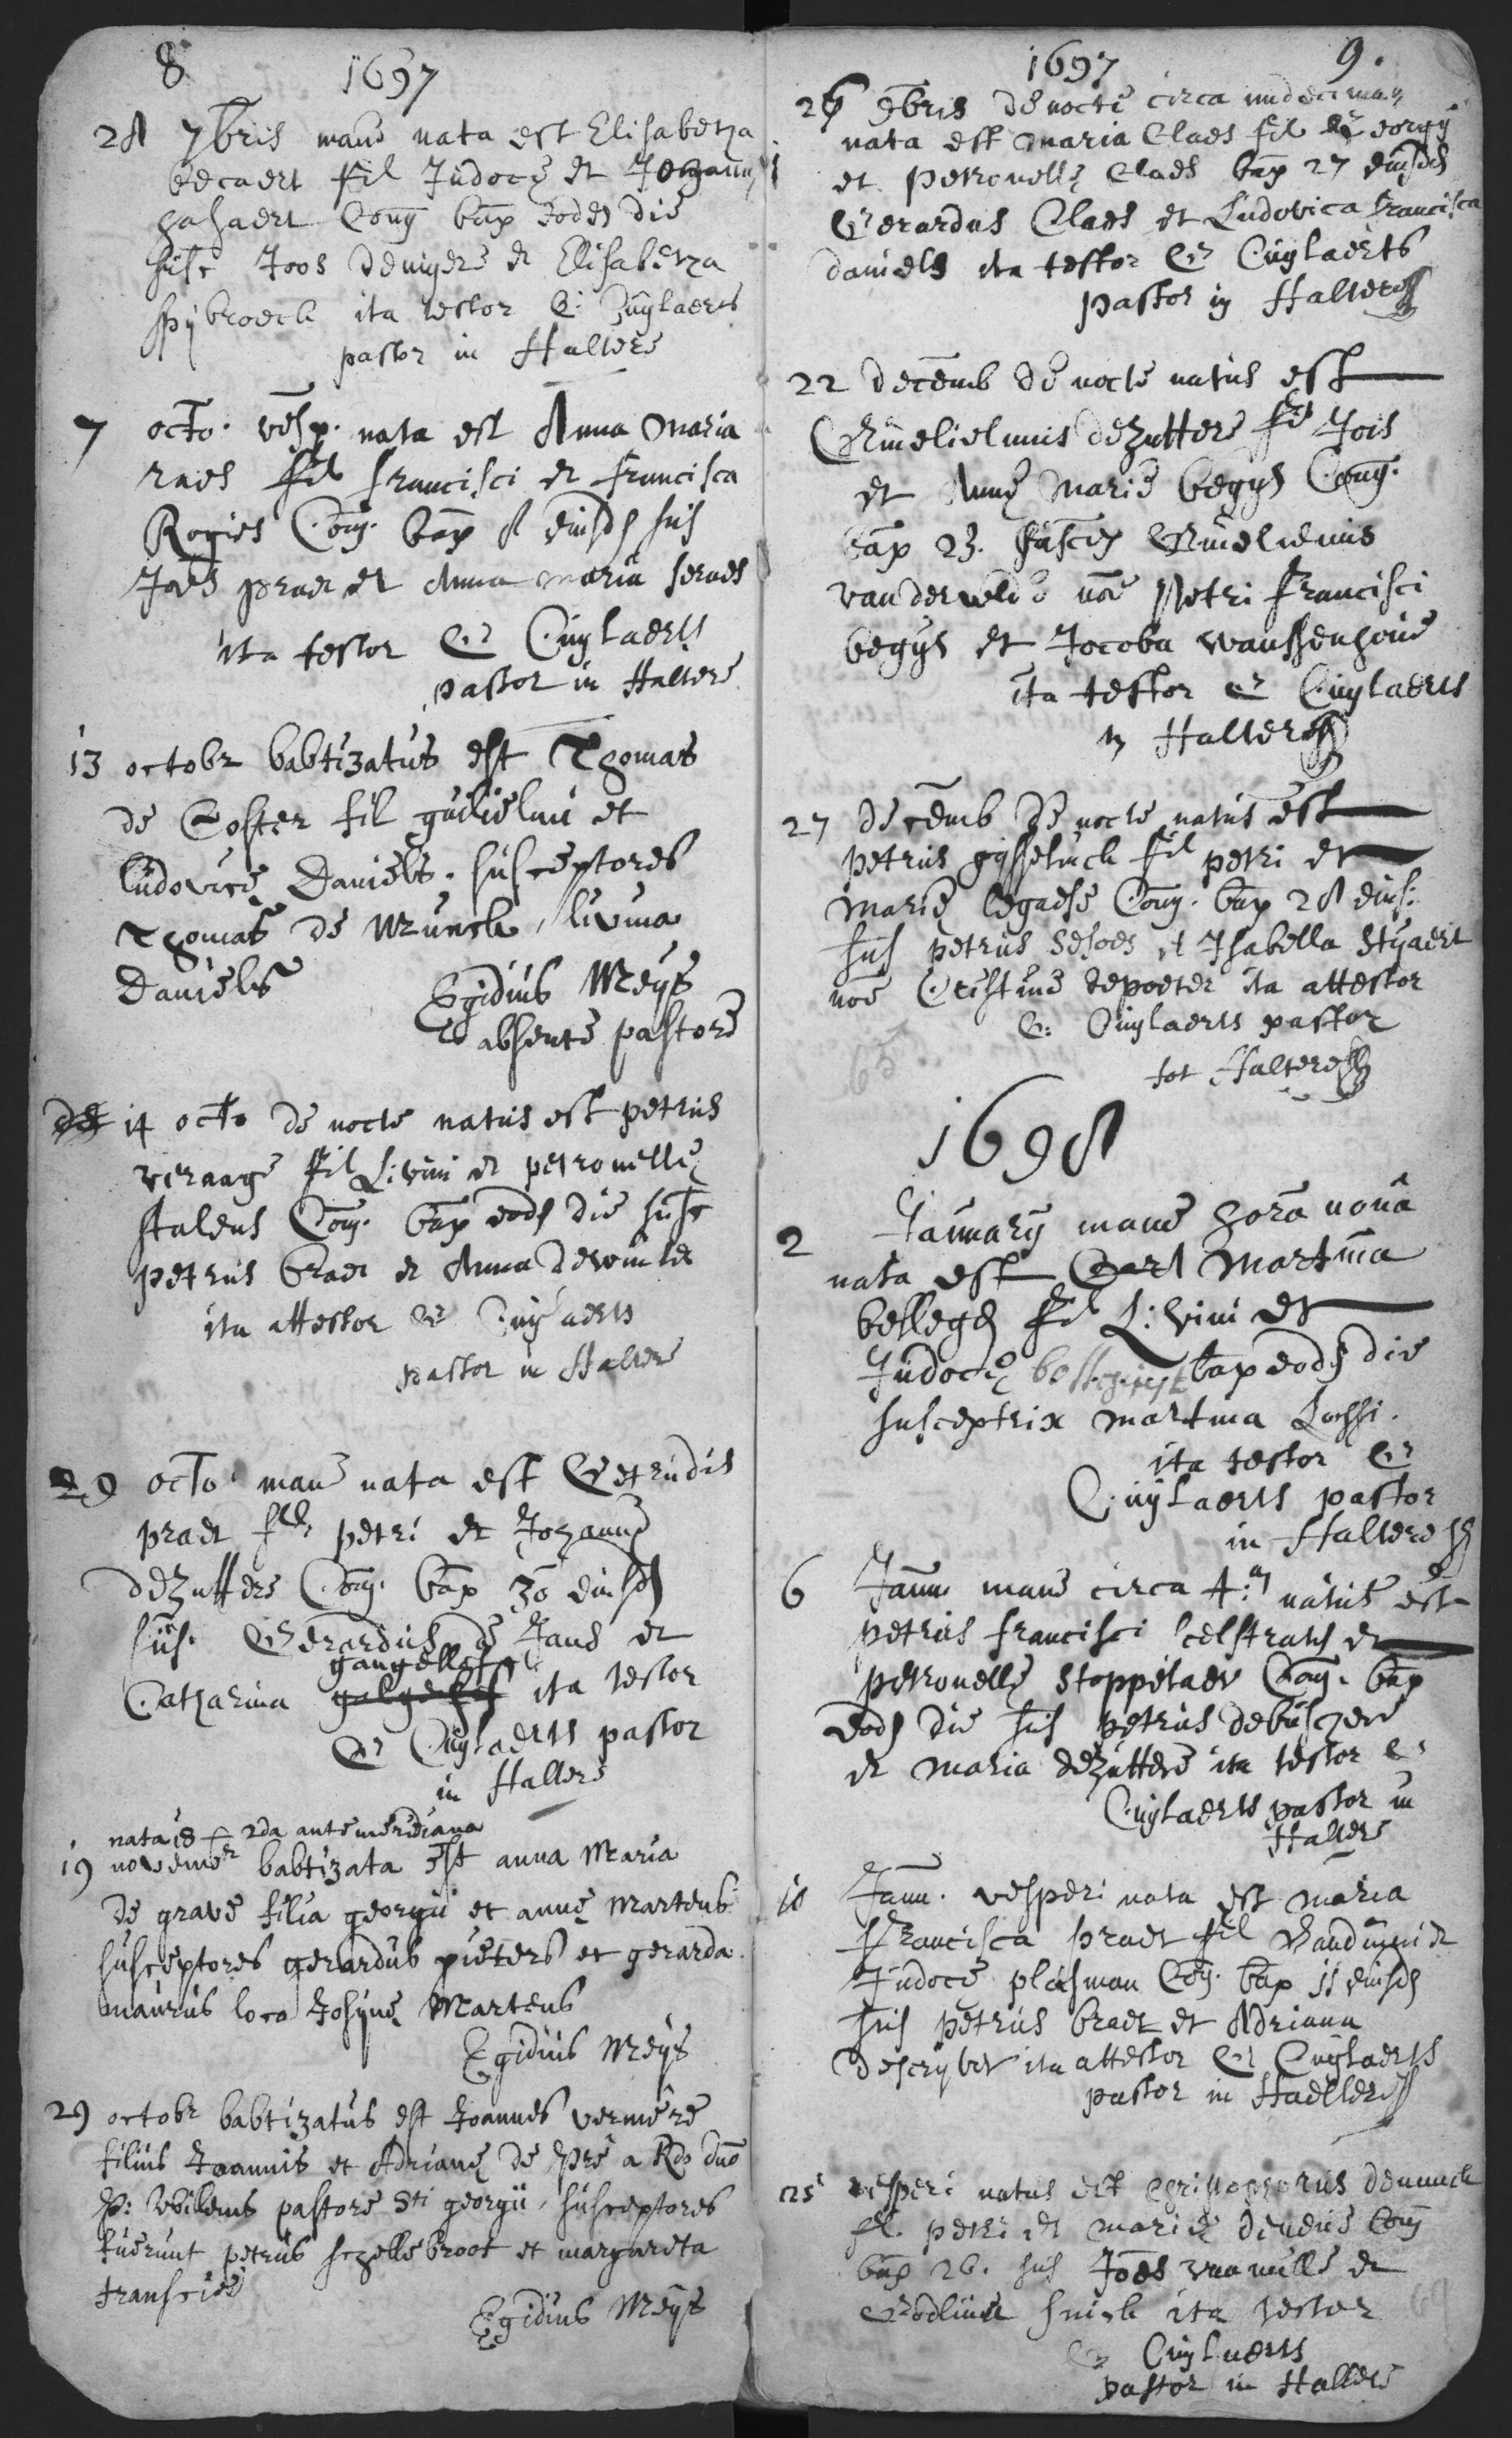 8 1697
28 7bris mane nata est Elisabetha
becaert fil Judocę et Johannę
hasaert Conj bap eodẽ die
susc Joos deuigere et Elisabetha
spybroeck ita testor G: Cuylaerts
pastor in Haltere
7 octo. vesp. nata est Anna Maria
raes fil francisci et francisca
Rogies Conj. bap 8 eiusdẽ sus
Joẽs praet et Anna maria seraes
ita testor G Cuylaerts
pastor in Haltere
13 octobr babtizatus est Thomas
de Coster fil guilielmi et
Ludovicę Daniels. susceptores
Thomas de vrunck, livina
Daniels
Egidius Meys
absente pastore
14 octo de nocte natus est petrus
veraage fil Livini et petronellę
stalens Conj. bap eodẽ die susc
petrus braet et Anna dewinter
ita attestor G Cuylaerts
pastor in Haltere
29 octo mane nata est Getrudis
praet fil petri et Johannę
dezuttere Conj. bap 30 eiusdẽ
sus. Gerardus de Jaud et
gangellof
Catharina ita testor
G Cuylaerts pastor
in Haltere
nata 18 2da antemeridiana
19 novembr babtizata est anna Maria
de grave filia georgii et annę Martens
susceptores gerardus pieters et gerarda
maurus loco Josynę Martens
Egidius Meys
29 octobr babtizatus est Joannes vermere
filius Joannis et Adrianę de Pre a Rdo dno
P: Willems pastore Sti georgii, susceptores
fuerunt petrus schellebroot et margareta
transcide
Egidius Meys
1697 9.
26 9bris de nocte circa undeciman
nata est Maria Claes fil Georgy
et petronellę Claes bap 27 eiusdẽ
Gerardus Claes et Ludovica francisca
daniels ita testor G Cuylaerts
pastor in Haltere
22 decemb de nocte natus est
Guilielmus dezuttere fil Jois
et Annę Marię begyn Conj.
bap 23. suscep Guilielmus
vandervelde noe Petri francisci
begyn et Jocoba vanssenhove
ita testor G Cuylaerts
in Haltere
27 decemb de nocte natus est
petrus gysselinck fil petri et
Marię legaese Conj. bap 28 eius:
sus petrus sesoes et Isabella Styaert
noe Cristine depoeter ita attestor
G: Cuylaerts pastor
tot Haltere
1698
2 January mane hora nona
nata est Martina
bellegh fil Livini et
Judocę bap eodẽ die
susceptrix Martina Lochsi.
ita testor G
Cuylaerts pastor
in Haltere
6 Janu mane circa 4:am natus est
petrus francisci celstraets et
petronellę Stoppelaer Conj. bap
eodẽ die sus petrus debuschere
et Maria dezuttere ita testor G
Cuylaerts pastor in
Haltere
10 Janu. vesperi nata est Maria
Francisca praet fil Bauduini et
Judocę plasman Conj. bap 11 eiusdẽ
sus petrus braet et Adriana
descryver ita attestor G Cuylaerts
pastor in Haeltere
25 vesperi natus est Christophorus denuick
fil. petri et Marię deneve Conj
bap 26. sus Joẽs van mille et
Godlive snick ita testor
G Cuylaerts
pastor in Haltere